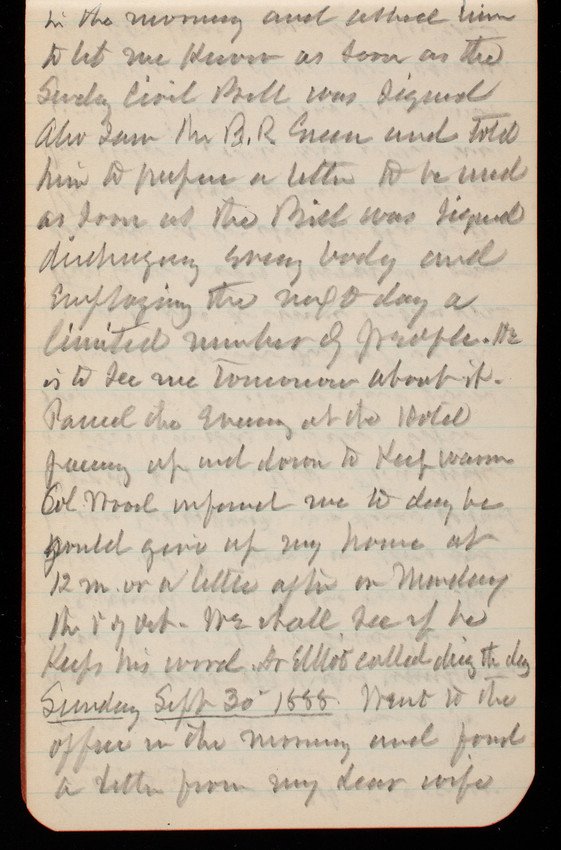 in the morning and asked him
to let me know as soon as the
Sundry Civil Bill was signed
Also saw Mr B. R. Green and told
him to prepare a letter to be used
as soon as the Bill was signed
discharging every body and
Employing the next day a
limited number of people. He
is to see me tomorrow about it.
Passed the Evening at the Hotel
pacing up and down to Keep warm
Col Wood informed me to day he
would give up my house at
12 m. or a little after on Monday
the of Oct. We shall see if he
Keeps his word. Dr Elliot called during the day
Sunday Sept 30 1888 Went to the
office in the morning and found
a letter from my dear wife